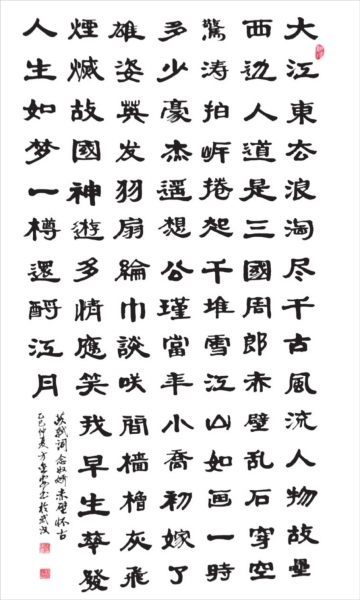 大江東去浪淘尽千古風流人物故壘
西边人道是三國周郎赤壁乱石穿空
驚涛拍岸捲起千堆雪江山如画一時
多少豪杰遥想公瑾當年小喬初嫁了
雄姿英发羽扇綸巾談咲間檣櫓灰飛
煙滅故國神遊多情應笑我早生華發
人生如梦一樽還酹江月
苏轼词念奴娇赤壁怀古
乙巳仲夏方书於武汉